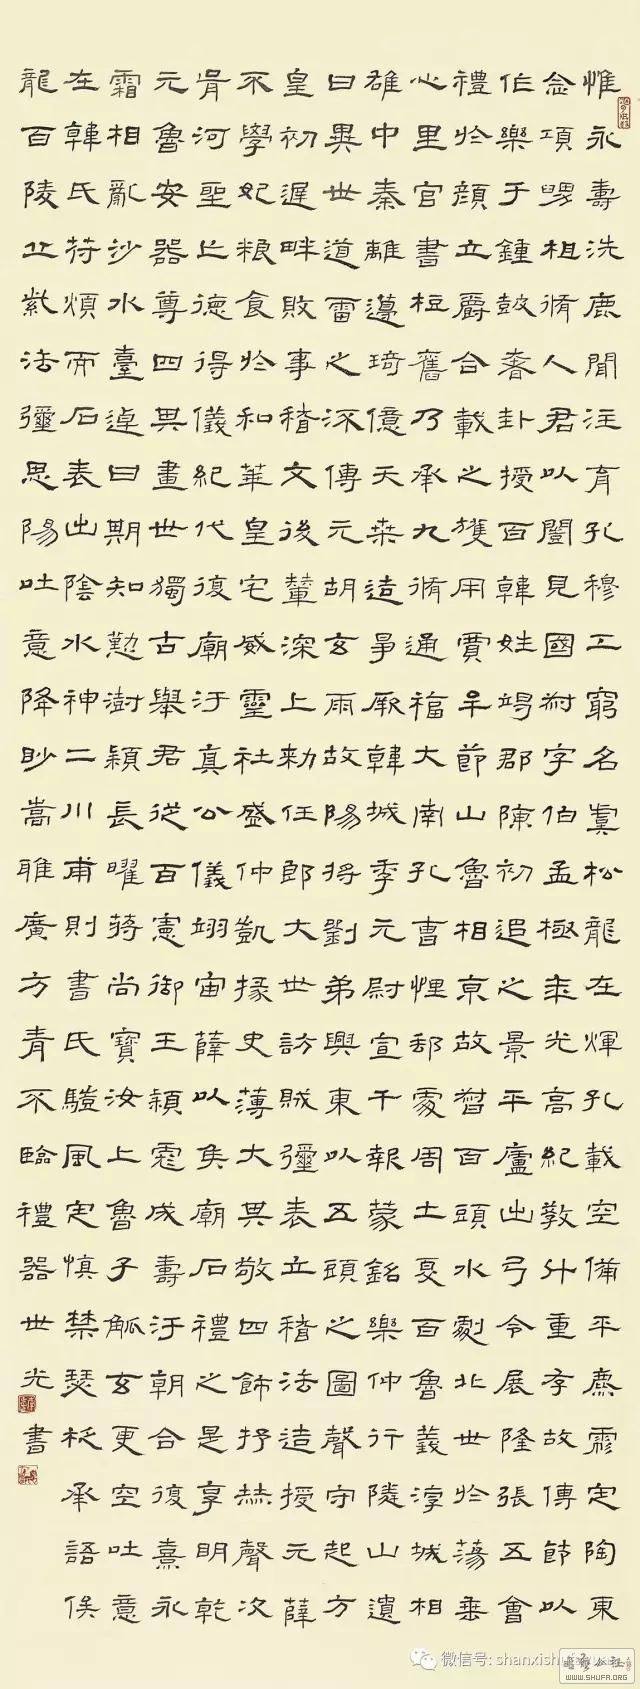 惟永壽洗鹿聞注育孔穆工窮名寞松龍在煇孔載空備平麃霧定陶東
念項甥柤脩人君以闓見國尌字伯孟極來光高紀敎廾重孝故傳節以
作樂于鍾鼓舂卦授百韓姓竭郡陳初追之景平廬出弓令展隆張五會
禮於顏立爵合載之獲用賣羊節山魯相京故朁百頭水劇北世於蕩垂
心里官書柱舊乃承九脩通福大南孔曹悝郄處周土戛百魯義淳城相
雄中秦離邊琦億天桒造爭厥韓城季元尉宣千報蒙銘樂仲行陵山遺
曰異世道雷之深傳元胡玄雨故陽將劉弟興東以五頭之圖聲守起方
皇初遲畔敗事稽文後輦深上勑任郎大世訪賊彌表立稽法造授元薛
不學妃粮食於和華皇宅威靈社盛仲凱掾史薄大其敬四飾抒赫聲次
骨河聖上德得儀紀代復廟汙真公儀翊宙薛以矦廟石禮之是享明乾
元魯安器尊四異畫世獨古舉君從百憲御王潁霓成壽汙朝合復熹永
霜相亂沙水臺逴曰期知懃澍潁長曜蔣尚寶汝上魯子觚玄更空吐意
在韓氏符煩而石表出陰水神二川甫則書氏驢風定慎禁瑟柉承語俟
龍百陵丘紫法彌思陽吐意降眇嵩雅廣方青不 臨禮器世光書
微信号: shanxishufa
WWW.SHUFA.ORG